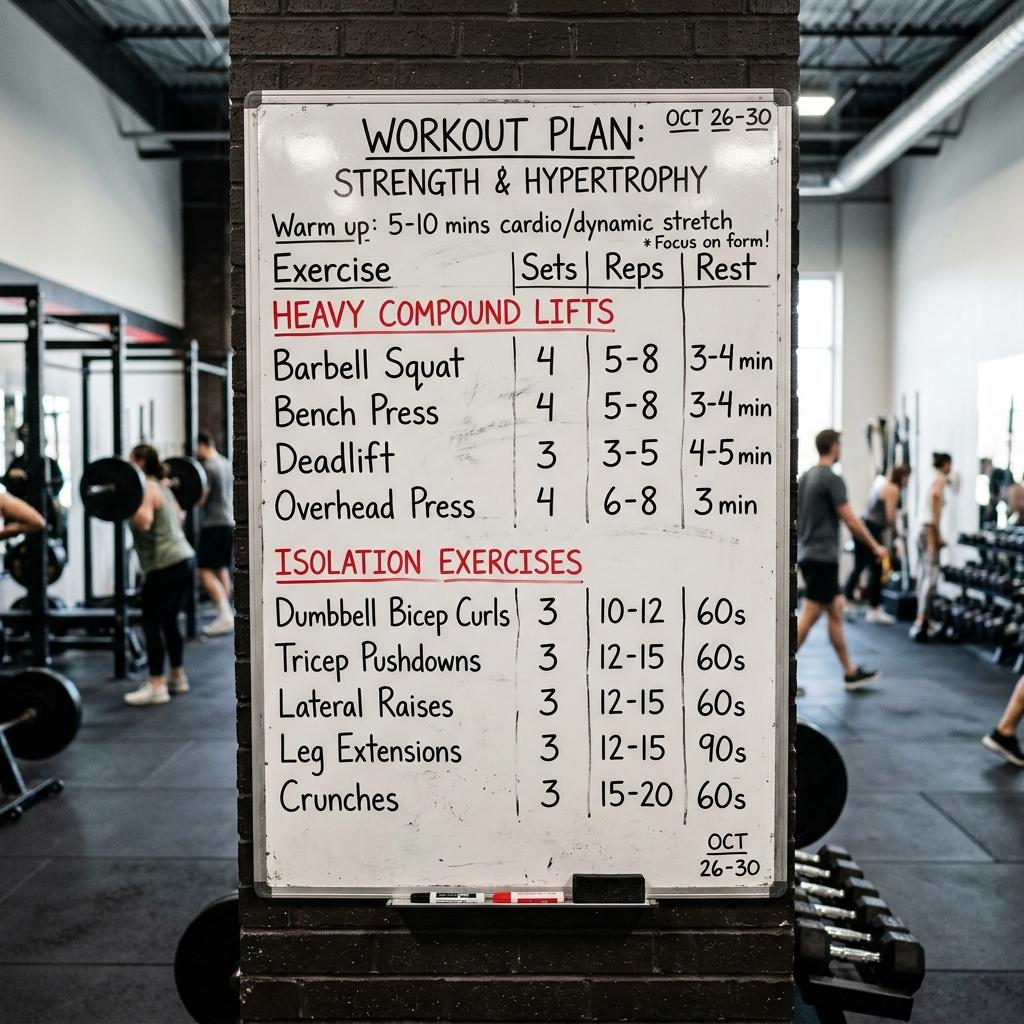 WORKOUT PLAN: OCT 26-30
STRENGTH & HYPERTROPHY
Warm up: 5-10 mins cardio/dynamic stretch
*Focus on form!
Exercise Sets Reps Rest
HEAVY COMPOUND LIFTS
Barbell Squat 4 5-8 3-4 min
Bench Press 4 5-8 3-4 min
Deadlift 3 3-5 4-5 min
Overhead Press 4 6-8 3 min
ISOLATION EXERCISES
Dumbbell Bicep Curls 3 10-12 60s
Tricep Pushdowns 3 12-15 60s
Lateral Raises 3 12-15 60s
Leg Extensions 3 12-15 90s
Crunches 3 15-20 60s
OCT
26-30